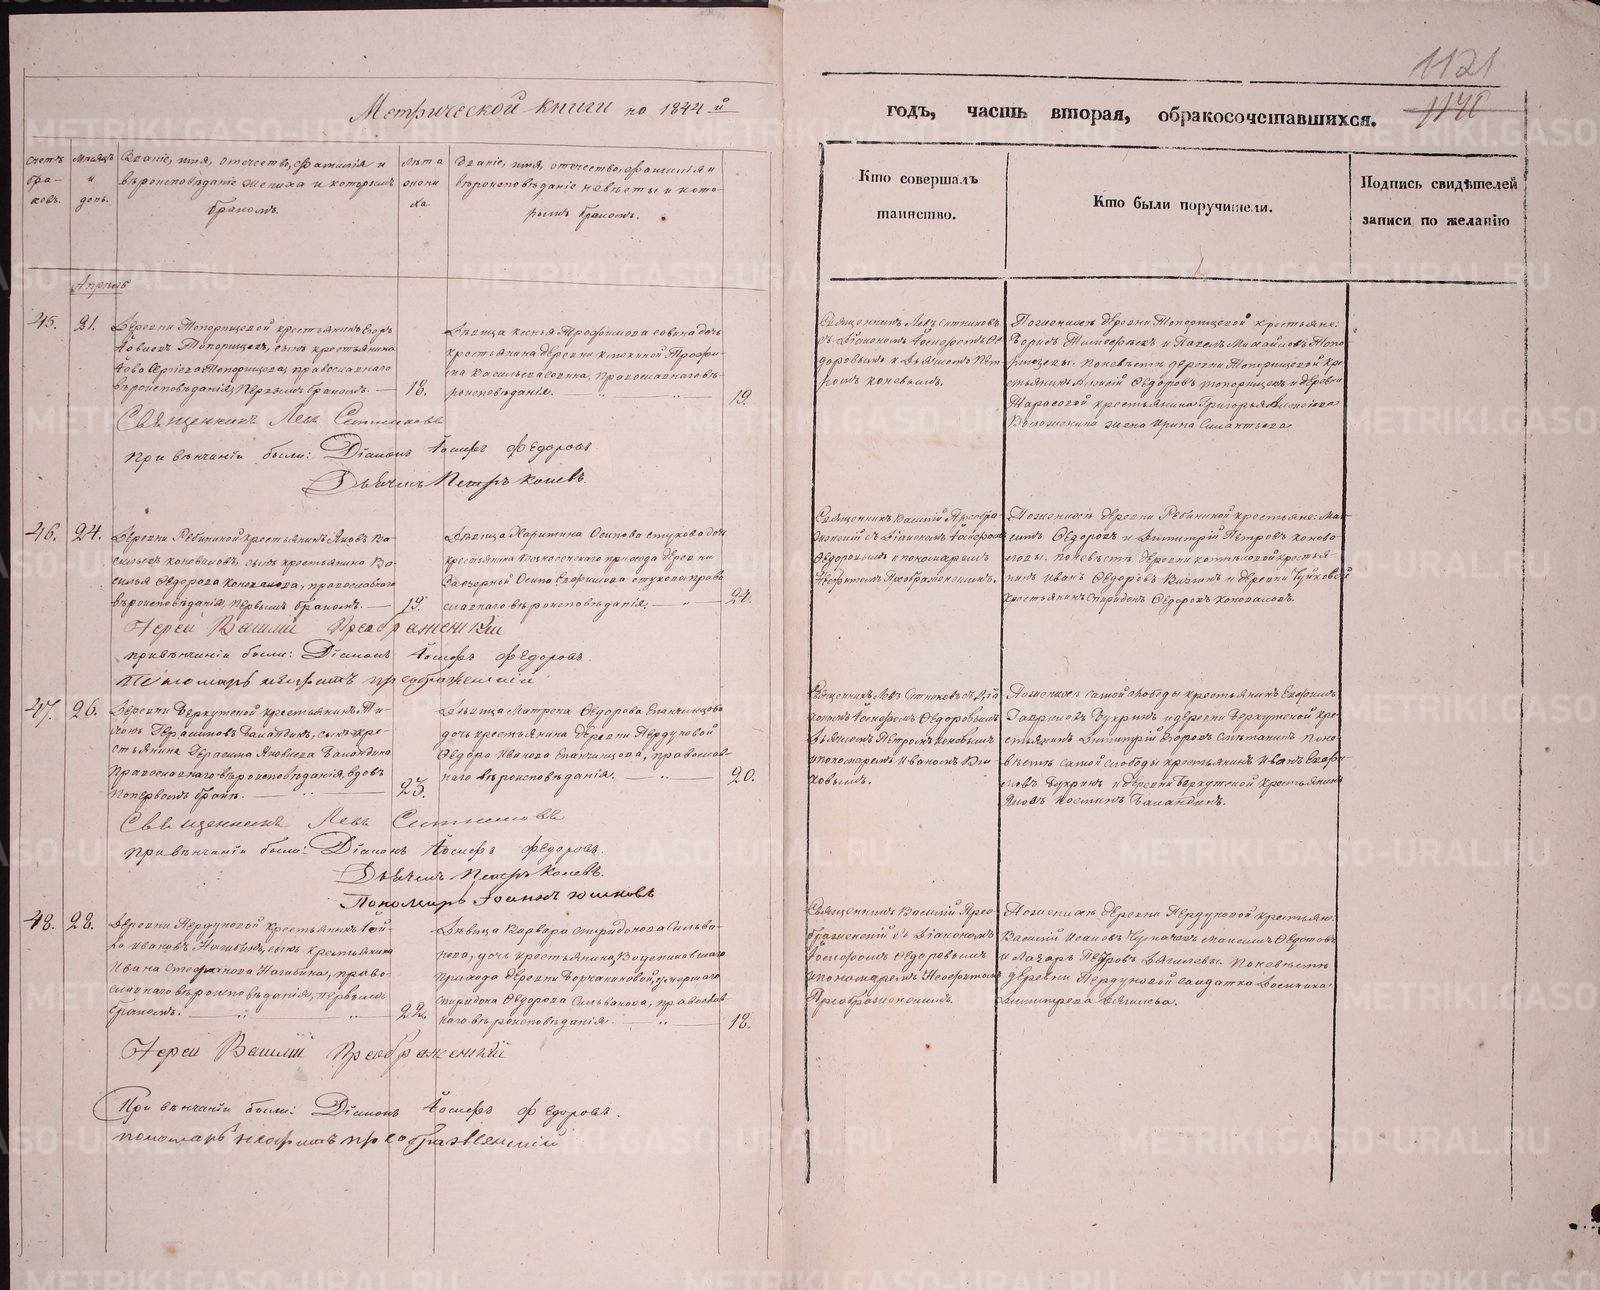 1121
1170
Метрической книги на 1844 й
годъ, часть вторая, обракосочетавшихся.
Счетъ
бра-
ковъ.
Мѣсяцъ
и
день.
Званіе, имя, отечество, фамилія и
вѣроисповѣданіе жениха и которымъ
бракомъ.
Лѣта
жени
ха.
Званіе, имя, отечество, фамилія и
вѣроисповѣданіе невѣсты и кото-
рымъ бракомъ.
Кто совершалъ
таинство.
Кто были поручители.
Подпись свидѣтелей
записи по желанію
Апрель
45. 21.
Деревни Топорищевой крестьянинъ
Топорищевъ, сынъ крестьянина
Сергѣева Топорищева, православнаго
вѣроисповѣданія, первымъ бракомъ.
18.
Дѣвица Ксенья Трофимова дочь
крестьянина деревни Клюкиной Трофи-
ма Васильева православнаго вѣ-
роисповѣданія.
19.
Священникъ Левъ Ситниковъ
съ Діакономъ Іосифомъ Фе-
доровымъ и Дьячкомъ Пет-
ромъ Коневымъ.
По женихѣ деревни Топорищевой крестьяне:
Борисъ Тимофѣевъ и Павелъ Михайловъ Топо-
рищевы. По невѣстѣ деревни Топорищевой кре-
стьянинъ Алексѣй Федоровъ Топорищевъ и деревни
Тарасовой крестьянина Григорья Алексѣева
жена Ирина
Священникъ Левъ Ситниковъ
При вѣнчаніи были: Діаконъ Іосифъ Федоровъ
Дьячекъ Петръ Коневъ.
46. 24.
Деревни Рябининой крестьянинъ Яковъ Ва-
сильевъ Коноваловъ, сынъ крестьянина Ва-
силья Федорова Коновалова, православнаго
вѣроисповѣданія, первымъ бракомъ.
19.
Дѣвица Харитина Осипова Стукова дочь
крестьянина прихода деревни
Заозерной Осипа Ефимова Стукова право
славнаго вѣроисповѣданія.
24.
Священникъ Василій Преобра-
женскій съ Діакономъ Іосифомъ
Федоровымъ и пономаремъ
Неофитомъ Преображенскимъ.
По женихѣ деревни Рябининой крестьяне: Мак-
симъ Федоровъ и Димитрій Петровъ Конова-
ловы. По невѣстѣ деревни крестья-
нинъ Иванъ Федоровъ и деревни
крестьянинъ Спиридонъ Федоровъ Коноваловъ.
Іерей Василій Преображенскій
при вѣнчаніи были: Діаконъ Іосифъ Федоровъ.
Пономарь Неофитъ Преображенскій
47. 26.
Деревни Беркутской крестьянинъ Ти-
хонъ Герасимовъ Баландинъ, сынъ кре-
стьянина Герасима Яковлева Баландина
православнаго вѣроисповѣданія, вдовъ
по первомъ бракѣ.
23.
Дѣвица Матрена Федорова Епанчинцова
дочь крестьянина деревни Пердуновой
Федора Иванова Епанчинцова, православ-
наго вѣроисповѣданія.
20.
Священникъ Левъ Ситниковъ съ Діа
кономъ Іосифомъ Федоровымъ
Дьячкомъ Петромъ Коневымъ
и пономаремъ Иваномъ Юш
ковымъ.
По женихѣ самой слободы крестьянинъ Ефимъ
Гавриловъ Букринъ и деревни Беркутской кре
стьянинъ Димитрій Егоровъ Сметанинъ. По не
вѣстѣ самой слободы крестьянинъ Иванъ Ефи
мовъ Букринъ и деревни Беркутской крестьянинъ
Яковъ Костинъ Баландинъ.
Священникъ Левъ Ситниковъ
При вѣнчаніи были: Діаконъ Іосифъ Федоровъ.
Дьячекъ Петръ Коневъ.
Пономарь Іоаннъ Юшковъ
48. 28.
Деревни Пердуновой крестьянинъ
Ивановъ Нагибинъ, сынъ крестьянина
Ивана Стефанова Нагибина, право-
славнаго вѣроисповѣданія, первымъ
бракомъ.
22.
Дѣвица Варвара Спиридонова Сильва-
нова, дочь крестьянина,
прихода деревни умершаго
Спиридона Федорова Сильванова, православ-
наго вѣроисповѣданія.
18.
Священникъ Василій Прео-
браженскій съ Діакономъ
Іосифомъ Федоровымъ
и пономаремъ Неофитомъ
Преображенскимъ.
По женихѣ деревни Пердуновой крестьяне
Василій Исаковъ Максимъ Федотовъ
и Лазарь Петровъ По невѣстѣ
деревни Пердуновой солдатка
Дмитрева
Іерей Василій Преображенскій
При вѣнчаніи были: Діаконъ Іосифъ Федоровъ.
пономарь Неофитъ Преображенскій
METRIKI.GASO-URAL.RU